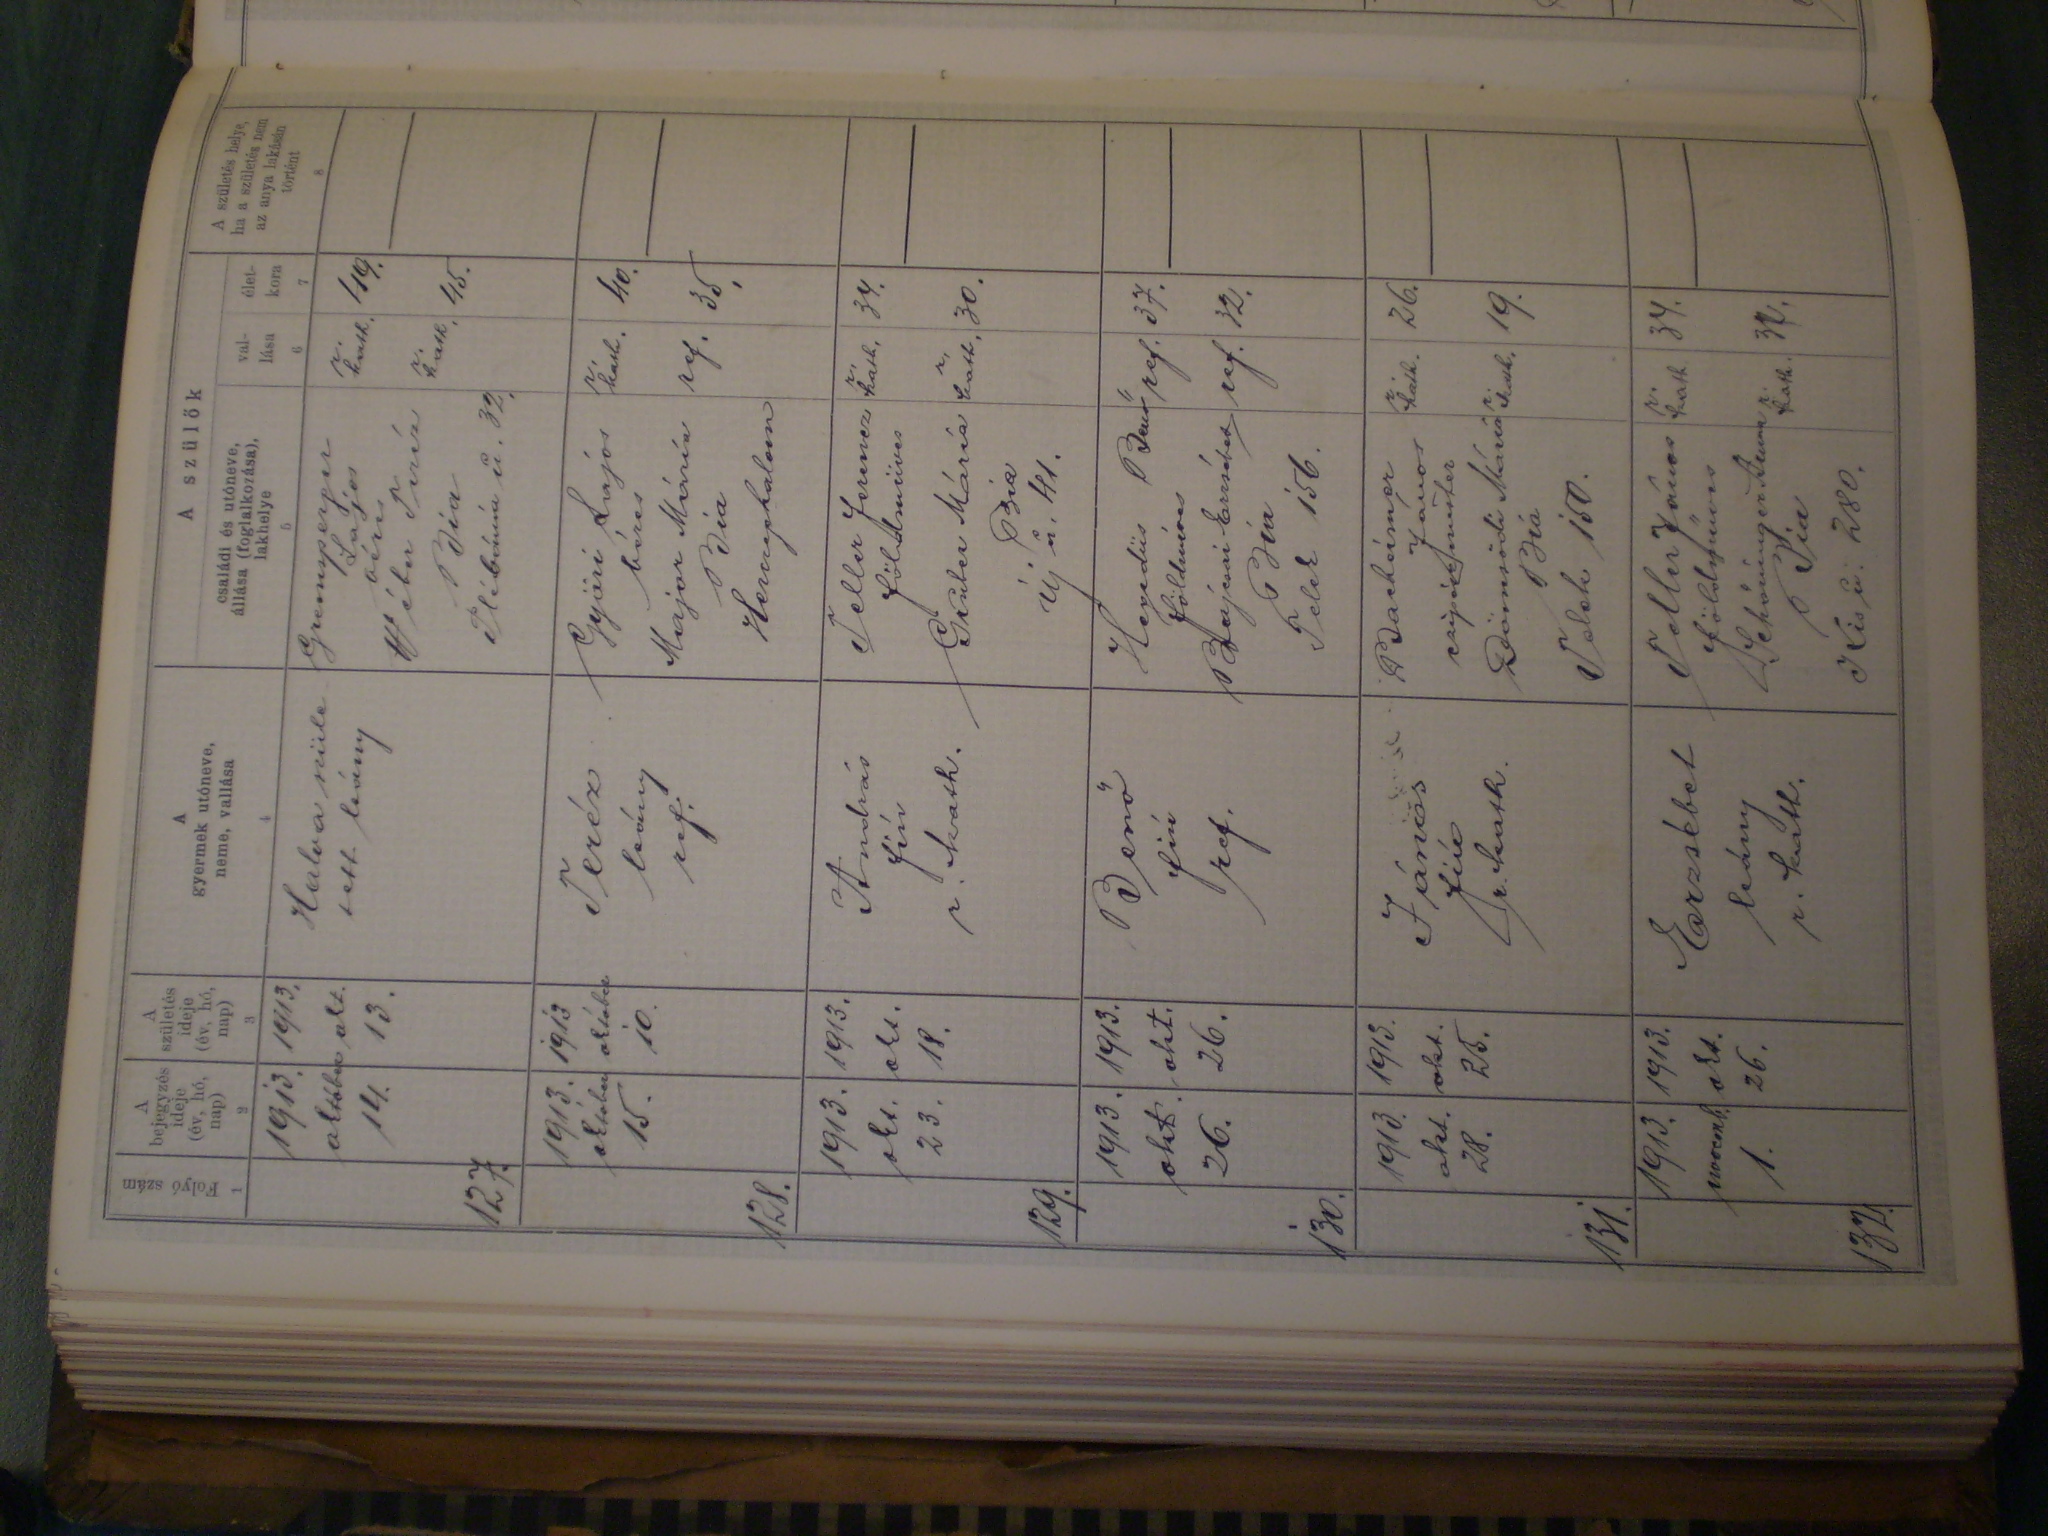 Folyó szám
A bejegyzés ideje (év, hó, nap)
A születés ideje (év, hó, nap)
A gyermek utóneve, neme, vallása
A szülők
családi és utóneve, állása (foglalkozása), lakhelye
vallása
életkora
A születés helye, ha a születés nem az anya lakásán történt
1
2
3
4
5
6
7
8
127.
1913.
október
14.
1913.
okt.
13.
Halva szüle
tett leány
Lajos
béres
Wéber Teréz
Bia
Plébánia u. 32.
r. kath.
r. kath.
49.
45.
128.
1913.
október
15.
1913
október
10.
Teréz
leány
ref.
Gyjári Lajos
béres
Major Mária
Bia
Herczeghalom
r. kath.
ref.
40.
35,
129.
1913.
okt.
23.
1913.
okt.
18.
András
fiú
r. kath.
Teller Ferencz
földmíves
Gruber Mária
Bia
Új u. 41.
r. kath.
r. kath.
34.
30.
130.
1913.
okt.
26.
1913.
okt.
26.
Benő
fiú
ref.
Hegedüs Benő
földmíves
Bajcsai Erzsébet
Bia
Telek 156.
ref.
ref.
37.
32.
131.
1913.
okt.
28.
1913.
okt.
25.
János
fiú
r. kath.
János
Dömsödi Mária
Bia
Telek 150.
r. kath.
r. kath.
26.
19.
132.
1913.
novemb.
1.
1913.
okt.
26.
Erzsébet
leány
r. kath.
Teller János
földmíves
Anna
Bia
Kis u. 280.
r. kath
r. kath.
34.